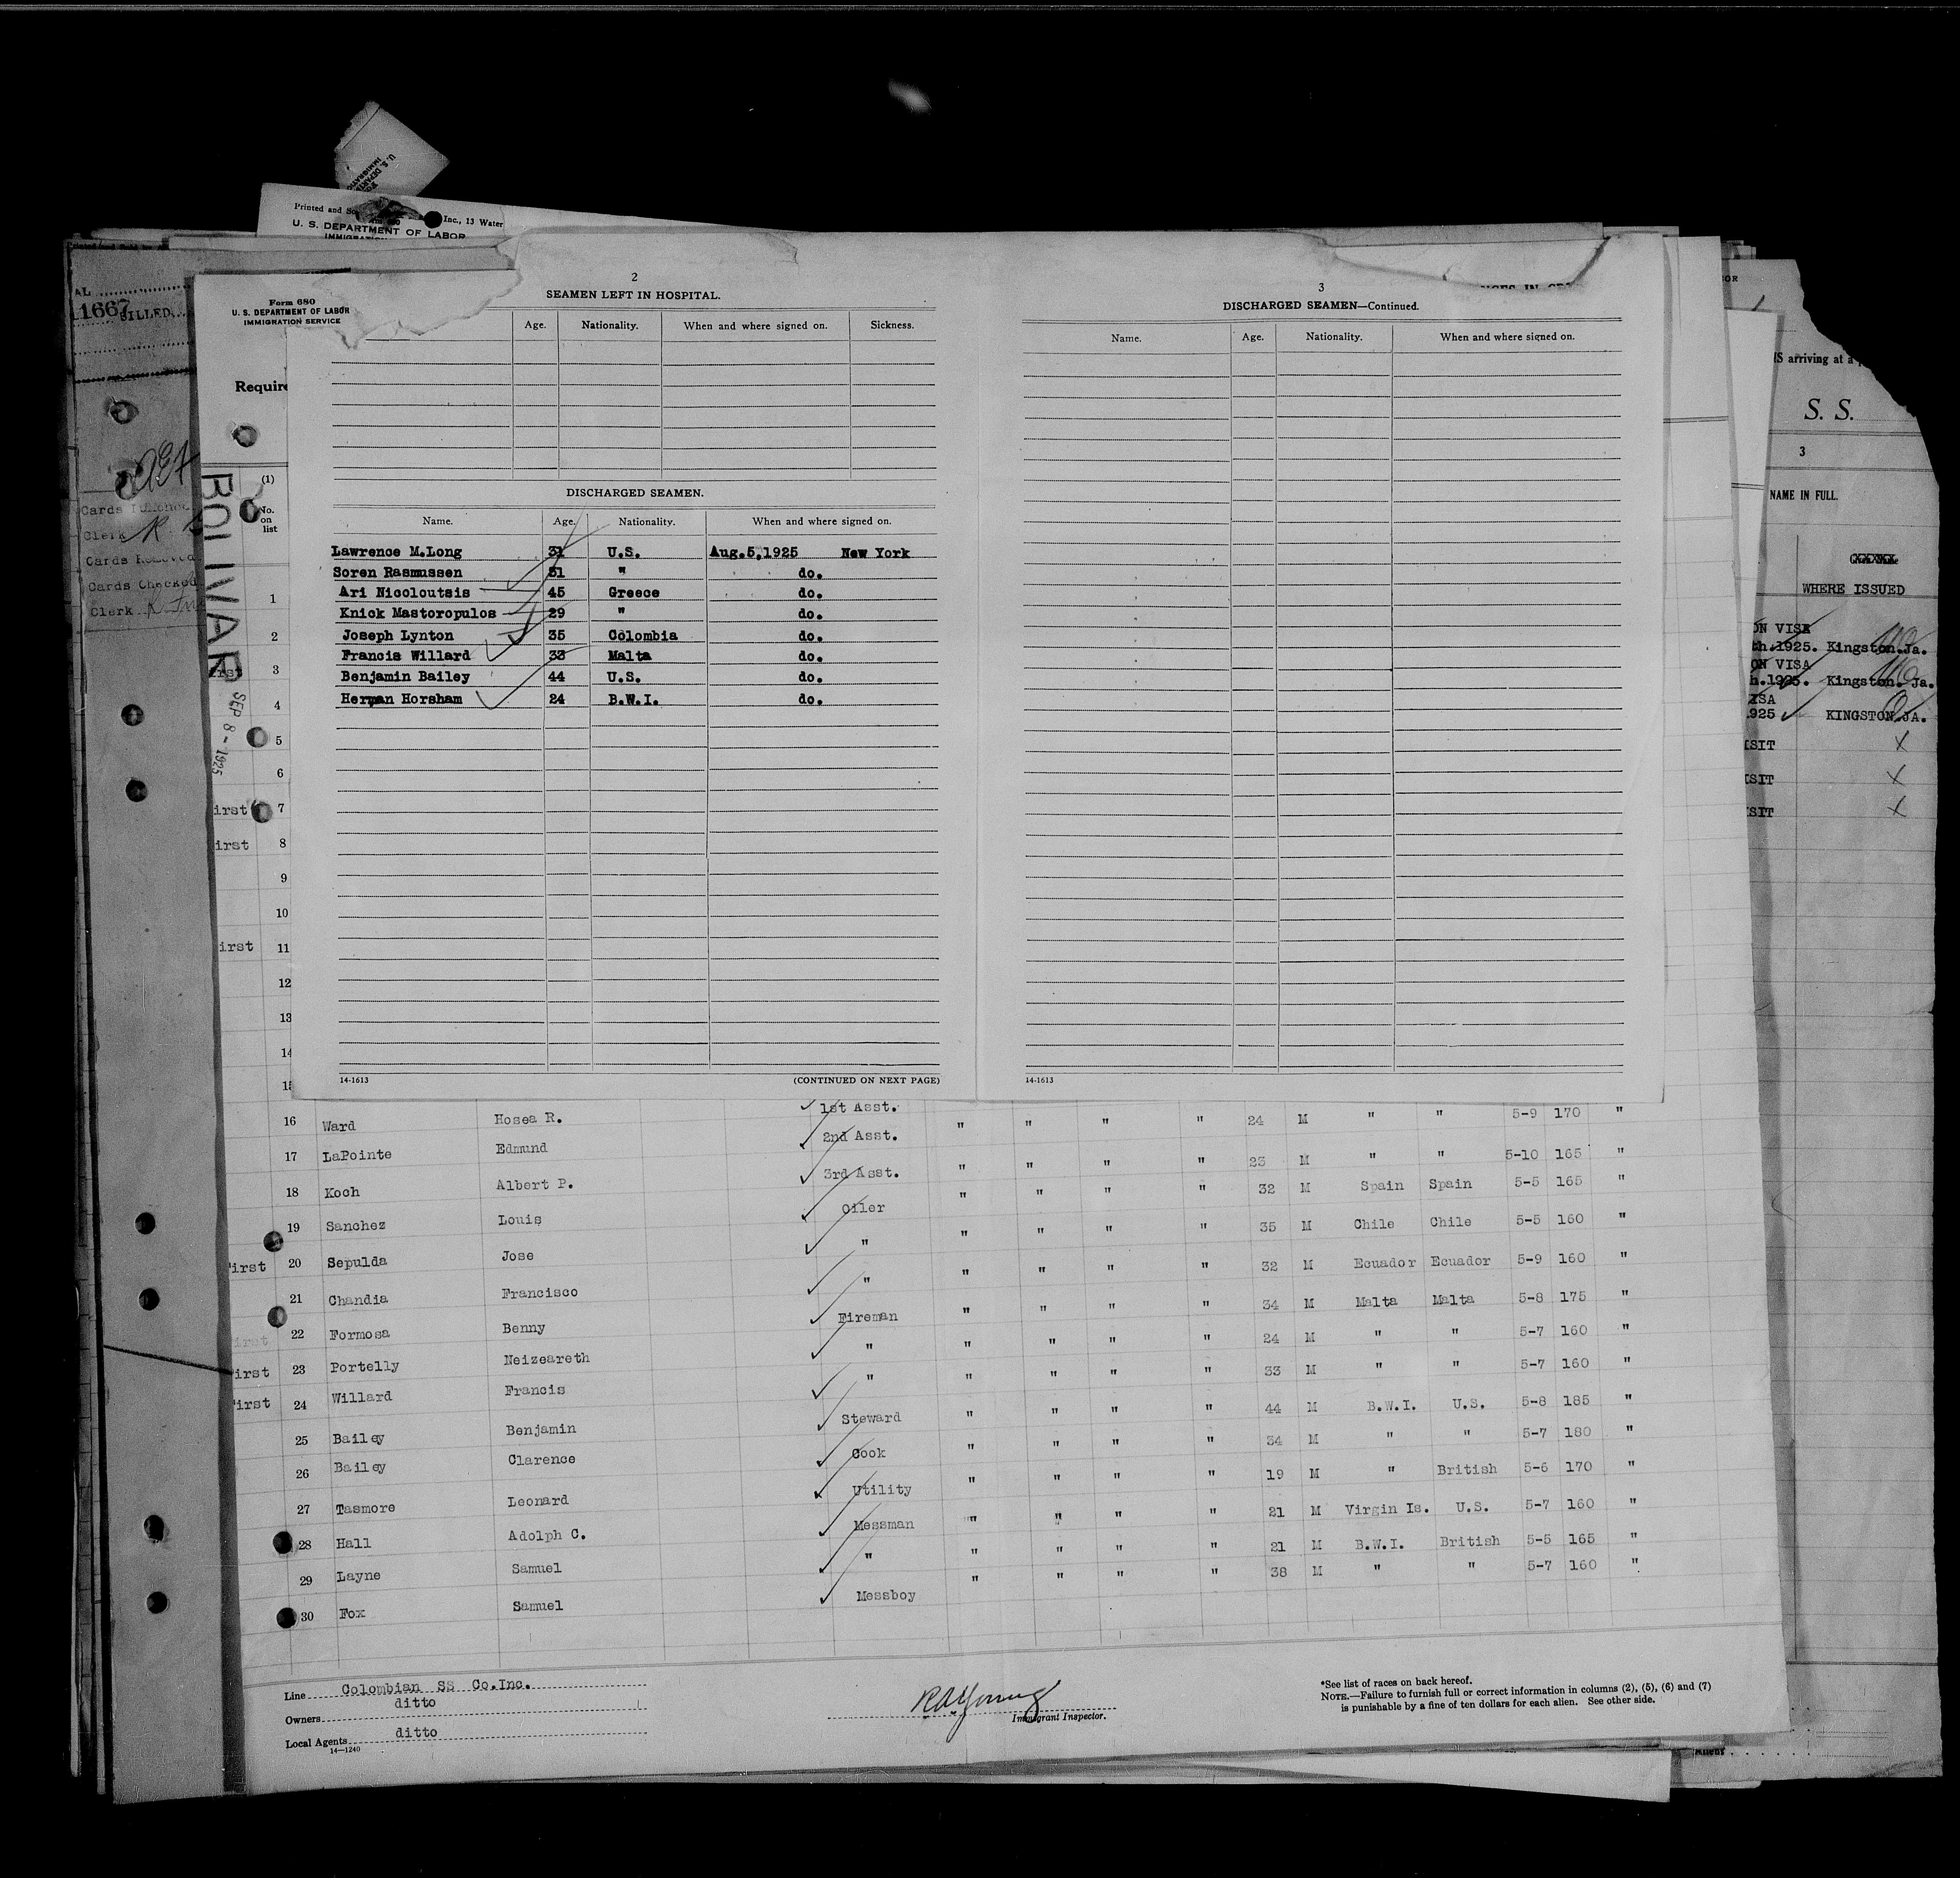 U. S. DEPARTMENT OF LABOR
Inc., 13 Water
Printed and
11667
Form 680
U. S. DEPARTMENT OF LABOR
IMMIGRATION SERVICE
Require
(1)
No. on list
BOLIVAR
SEP 8 - 1925
Cards
Clerk
Cards Removed
Cards Checked
Clerk
2
SEAMEN LEFT IN HOSPITAL.
Age. Nationality. When and where signed on. Sickness.
DISCHARGED SEAMEN.
Name. Age. Nationality. When and where signed on.
Lawrence M.Long 31 U.S. Aug.5,1925 New York
Soren Rasmussen 31 " do.
Ari Nicoloutsis 45 Greece do.
Knick Mastoropulos 29 " do.
Joseph Lynton 35 Colombia do.
Francis Willard 33 Malta do.
Benjamin Bailey 44 U.S. do.
Herman Horsham 24 B.W.I. do.
14-1613 (CONTINUED ON NEXT PAGE)
3
DISCHARGED SEAMEN—Continued.
Name. Age. Nationality. When and where signed on.
14-1613
IS arriving at a
S. S.
3
NAME IN FULL.
WHERE ISSUED
ON VISA
th.1925. Kingston.Ja.
ON VISA
h.1925. Kingston. Ja.
ISA
925 KINGSTON.JA.
ISIT X
ISIT X
ISIT X
1
2
irst 3
4
5
6
irst 7
irst 8
9
10
irst 11
12
13
14
1st Asst.
16 Ward Hosea R. 2nd Asst. " " " " 24 M " " 5-9 170 "
17 LaPointe Edmund 3rd Asst. " " " " 23 M " " 5-10 165 "
18 Koch Albert P. Oiler " " " " 32 M Spain Spain 5-5 165 "
19 Sanchez Louis " " " " " 35 M Chile Chile 5-5 160 "
First 20 Sepulda Jose " " " " " 32 M Ecuador Ecuador 5-9 160 "
21 Chandia Francisco Fireman " " " " 34 M Malta Malta 5-8 175 "
irst 22 Formosa Benny " " " " " 24 M " " 5-7 160 "
irst 23 Portelly Neizeareth " " " " " 33 M " " 5-7 160 "
First 24 Willard Francis Steward " " " " 44 M B.W.I. U.S. 5-8 185 "
25 Bailey Benjamin Cook " " " " 34 M " " 5-7 180 "
26 Bailey Clarence Utility " " " " 19 M " British 5-6 170 "
27 Tasmore Leonard Messman " " " " 21 M Virgin Is. U.S. 5-7 160 "
28 Hall Adolph C. " " " " " 21 M B.W.I. British 5-5 165 "
29 Layne Samuel Messboy " " " " 38 M " " 5-7 160 "
30 Fox Samuel
Line Colombian SS Co.Inc.
Owners ditto
Local Agents ditto
14—1240
R A Young
Immigrant Inspector.
*See list of races on back hereof.
NOTE.—Failure to furnish full or correct information in columns (2), (5), (6) and (7)
is punishable by a fine of ten dollars for each alien. See other side.